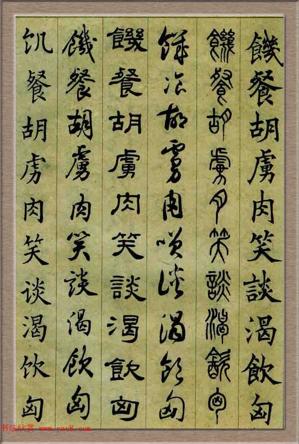 饑餐胡虜肉笑談渴飲匈
饑餐胡虜肉笑談渴飲匈
饑餐胡虜肉笑談渴飲匈
饑餐胡虜肉笑談渴飲匈
饑餐胡虜肉笑談渴飲匈
饥餐胡虏肉笑谈渴饮匈